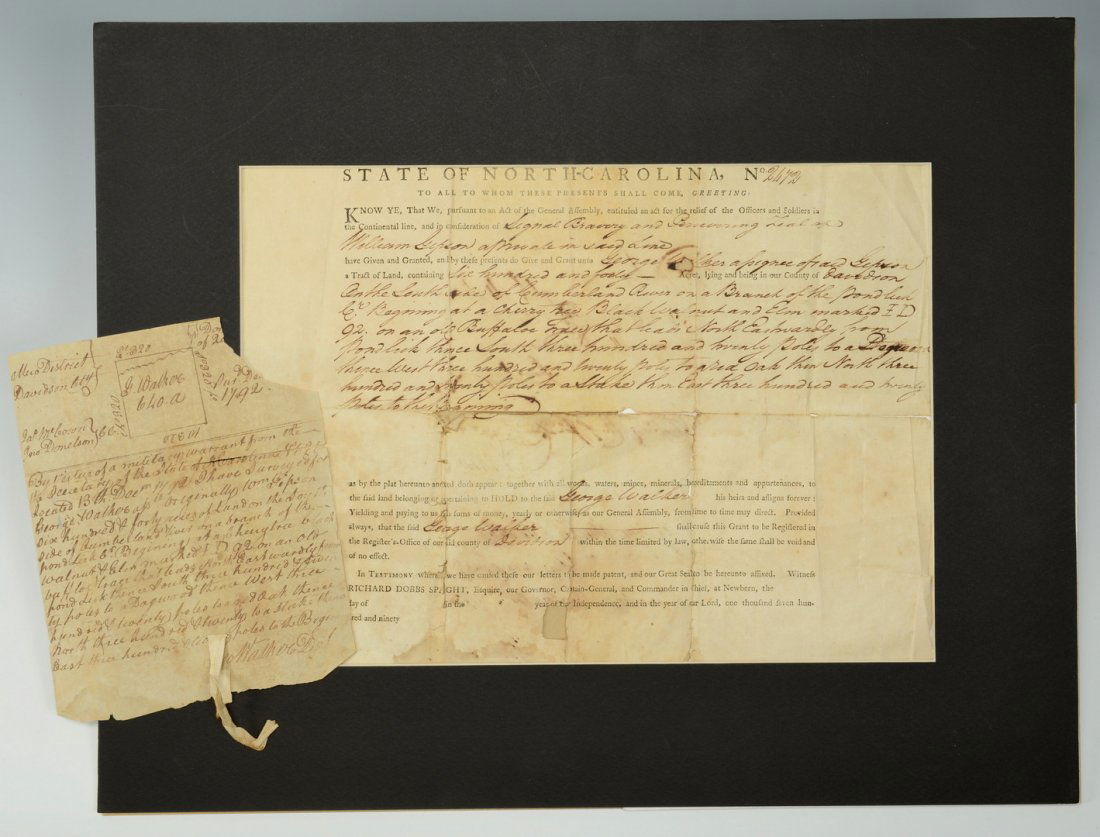 STATE OF NORTH-CAROLINA, No 2472
TO ALL TO WHOM THESE PRESENTS SHALL COME, GREETING:
KNOW YE, That We, pursuant to an Act of the General Assembly, entituled an act for the relief of the Officers and Soldiers in
the Continental line, and in consideration of Signal Bravery and Persevering Zeal of
William Gipson a private in said Line
have Given and Granted, and by these presents do Give and Grant unto George Walker asignee of said Gipson
a Tract of Land, containing Six hundred and forty Acres, lying and being in our County of Davidson
On the South side of Cumberland River on a Branch of the Pond lick
Cr. Begining at a Cherry tree Black Walnut and Elm marked F D
92. on an old Buffaloe trace that leads North Eastwardly from
Pond lick thence South three hundred and twenty Poles to a Dogwood
thence West three hundred and twenty Poles to a red Oak then North three
hundred and twenty Poles to a Stake then East three hundred and twenty
Poles to the Begining
as by the plat hereunto annexed doth appear: together with all woods, waters, mines, minerals, hereditaments and appurtenances, to
the said land belonging or appertaining: to HOLD to the said George Walker his heirs and assigns forever:
Yielding and paying to us such sums of money, yearly or otherwise, as our General Assembly, from time to time may direct. Provided
always, that the said George Walker shall cause this Grant to be Registered in
the Register's Office of our said county of Davidson within the time limited by law, otherwise the same shall be void and
of no effect.
In TESTIMONY whereof, we have caused these our letters to be made patent, and our Great Seal to be hereunto affixed. Witness
RICHARD DOBBS SPAIGHT, Esquire, our Governor, Captain-General, and Commander in Chief, at Newbern, the
day of in the year of our Independence, and in the year of our Lord, one thousand seven hun-
dred and ninety
Mero District
Davidson Cty
G. Walker
640. a
1792
Jas McCown
Jno Donelson CC
By Virtue of a military warrant from the
Secretary of the State of N Carolina
Located 13th Decm 1792 I have Surveyed for
George Walker asse originally Wm Gipson
Six hundred & forty acres of Land on the South
Side of Cumberland River on a branch of the
pond lick Cr Begining at a Cherytree black
Walnut & Elm marked F D 92 on an old
trace that leads North Eastwardly from
pond Lick thence South three hundred & twen
ty poles to a Dogwood thence West three
hundred & twenty poles to a red oak thence
North three hundred & twenty to a stake then
East three hundred & poles to the Begi
Walker